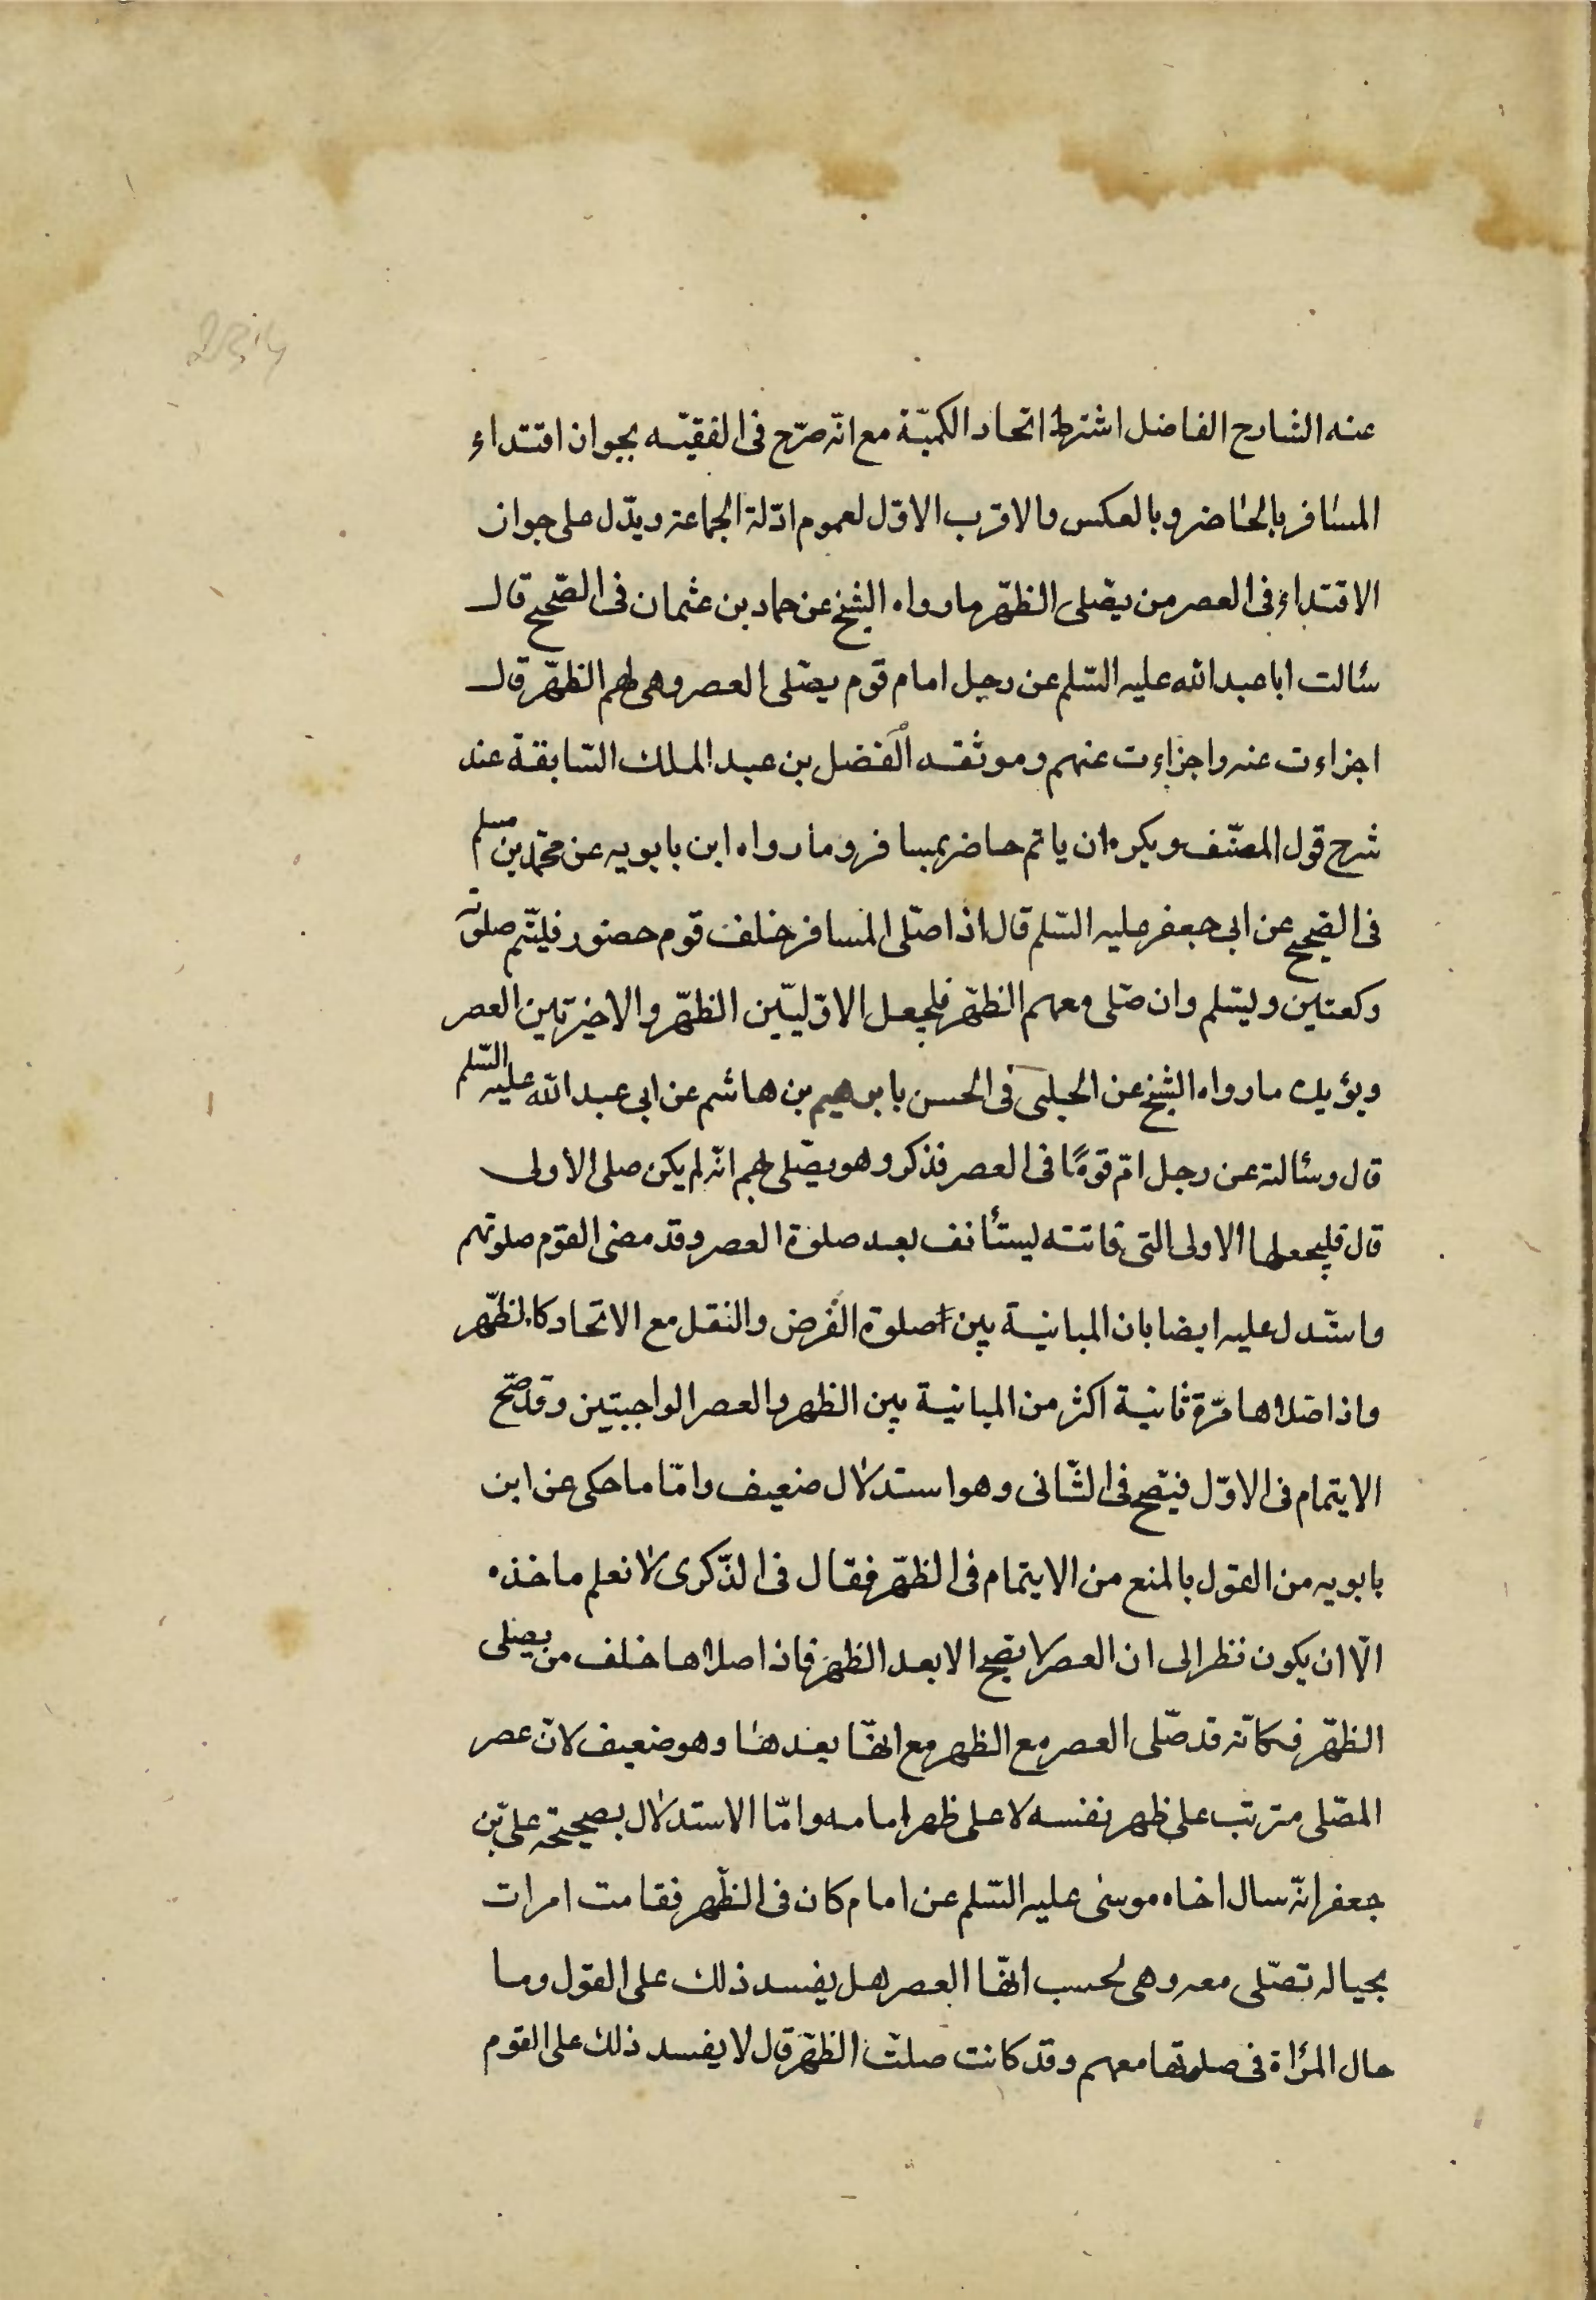 234
عنه الشارح الفاضل اشتراط اتحاد الكميّة مع انّه صرّح فى الفقيّه بجواز اقتداء
المسافر بالحاضر وبالعكس والاقرب الاوّل لعموم ادّلة الجماعة ويدّل على جواز
الاقتداء فى العصر من يصّلى الظهّر مارواه الشيخ عن حماد بن عثمان فى الصّحيح قال
سُالت ابا عبد الله عليه السّلم عن رجل امام قوم يصّلى العصر وهى لهم الظهّر قال
اجزاءت عنه واجزاءت عنهم وموثقه الفضل بن عبد الملك السّابقة عند
شرح قول المصنّف ويكره ان ياتم حاضر بمسافر ومارواه ابن بابويه عن محمّد بن مسلم
فى الصّحيح عن ابى جعفر عليه السّلم قال اذا صلّى المسافر خلف قوم حضور فليتّم صلوته
ركعتين ويسّلم وان صّلى معهم الظهّر فليجعل الاوّليّين الظهّر والاخيرتين العصر
ويؤيده مارواه الشيخ عن الحلبى فى الحسن بابرهيم بن هاشم عن ابى عبد الله عليه السّلم
قال وسُالته عن رجل امّ قومًا فى العصر فذكر وهو يصّلى بهم انّه لم يكن صلى الاولى
قال فليجعلها الاولى التى فاتته ليستأنف بعد صلوة العصر وقد مضى القوم صلوتهم
واستّدل عليه ايضا بان المباينية بين صلوة الفرض والنفل مع الاتحاد كالظهّر
واذا صّلاها مرّة ثانية اكثر من المباينية بين الظهر والعصر الواجبتين وقد صّح
الايتمام فى الاوّل فيصّح فى الثّانى وهو استدلال ضعيف وامّا ما حكى عن ابن
بابويه من القول بالمنع من الايتمام فى الظهّر فقال فى الذّكرى لا نعلم ماخذه
الّا ان يكون نظر الى ان العصر لا يصّح الا بعد الظهر فاذا صلاها خلف من يصلى
الظهّر فكانّه قد صّلى العصر مع الظهر مع انهّا بعدها وهو ضعيف لانّ عصر
المصّلى مترتبّ على ظهر نفسه لا على ظهر امامه وامّا الاستدلال بصحيحة علىّ بن
جعفر انّه سال اخاه موسى عليه السّلم عن امام كان فى الظّهر فقامت امرات
بحياله تصّلى معه وهى تحسب انهّا العصر هل يفسد ذلك على القول وما
حال المرُاة فى صلوتها معهم وقد كانت صلتّ الظهّر قال لا يفسد ذلك على القوم